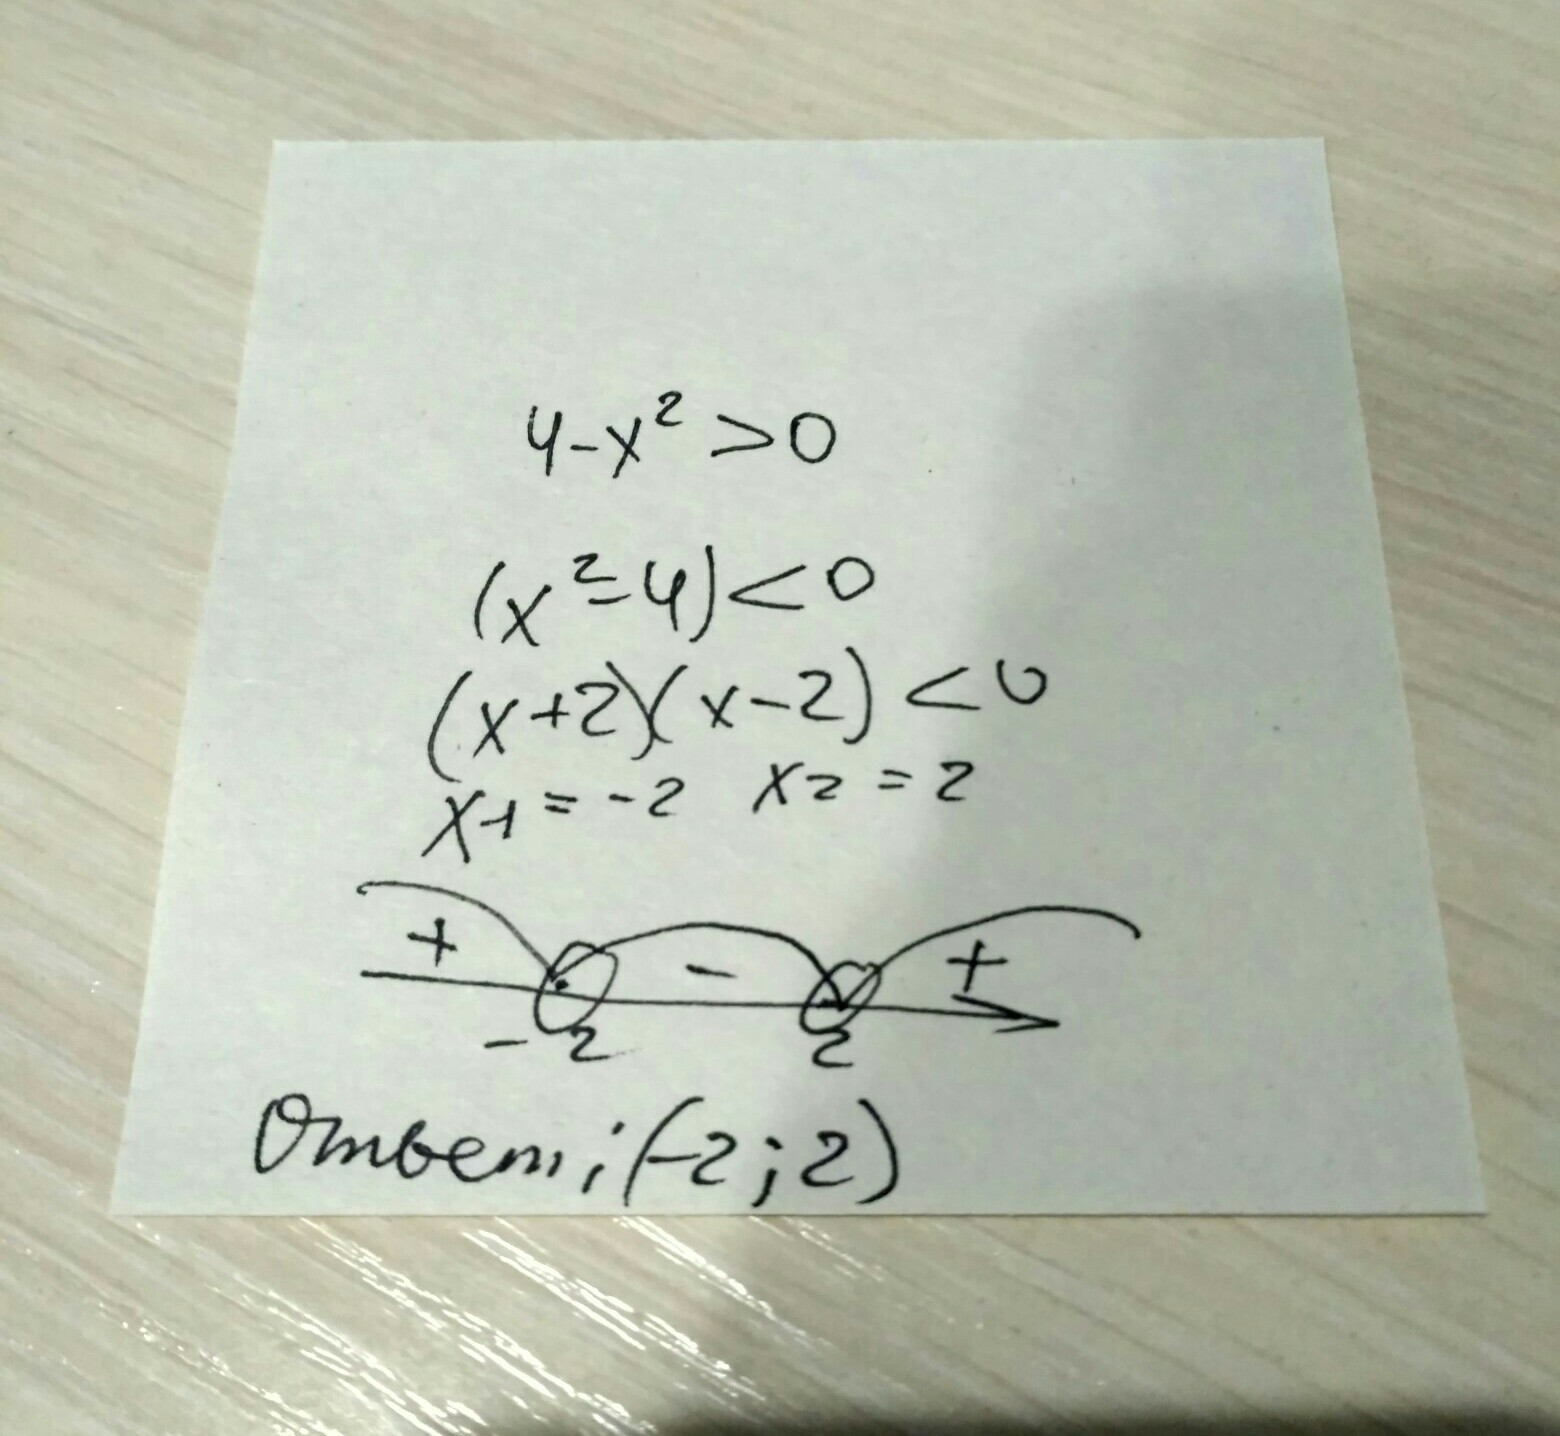 4-x² >0
(x²-4)<0
(x+2)(x-2)<0
x1=-2 x2=2
+ - +
-2 2
Ответ; (-2;2)